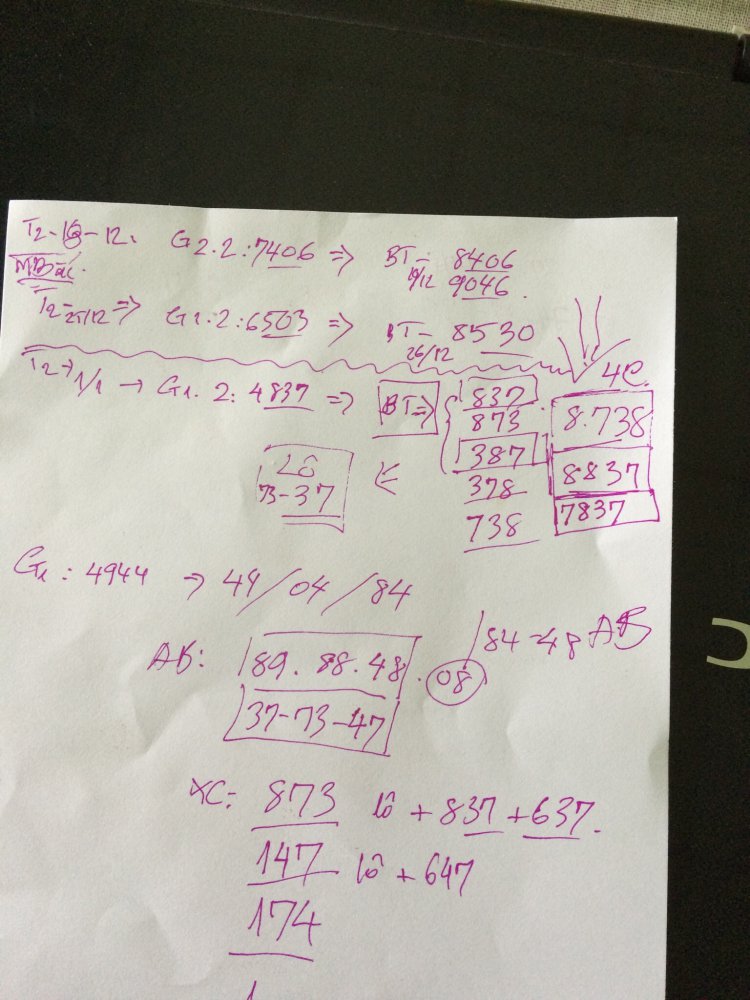 T2-18-12. G2.2:7406 => BT- 8406
MBắc. 19/12 9046.
T2-25/12 => G1.2:6503 => BT- 8530
26/12
T2 -> 1/1 -> G1. 2: 4837 => BT=> { 837 . 4C.
873 8.738
387 8837
Lô <= 378 7837
73-37 738
G1: 4944 -> 49/04/84
AB: 89.88.48 . 08 / 84-48 AB
37-73-47
XC: 873 lô + 837 + 637.
147 lô + 647
174